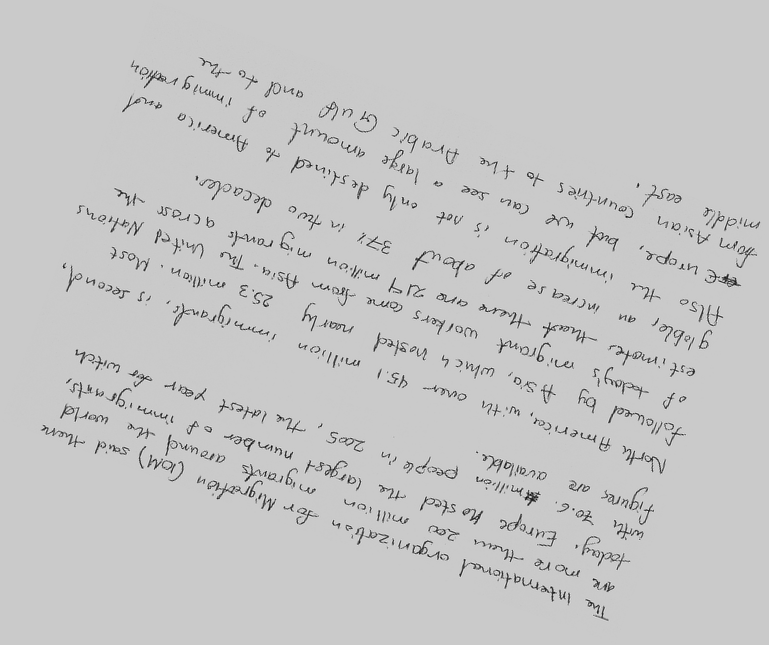 The International organization for Migration (IOM) said there
are more then 200 million migrants around the world
today. Europe hosted the largest number of immigrants,
with 70.6 million people in 2005, the latest year for witch
figures are available.
North America, with over 45.1 million immigrants, is second,
followed by Asia, which hosted nearly 25.3 million. Most
of today's migrant workers come from Asia. The United Nations
estimates that there are 214 million migrants across the
globle, an increase of about 37% in two decades.
Also the immigration is not only destined to America and
Europe, but we can see a large amount of immigration
from Asian Countries to the Arabic Gulf and to the
middle east.